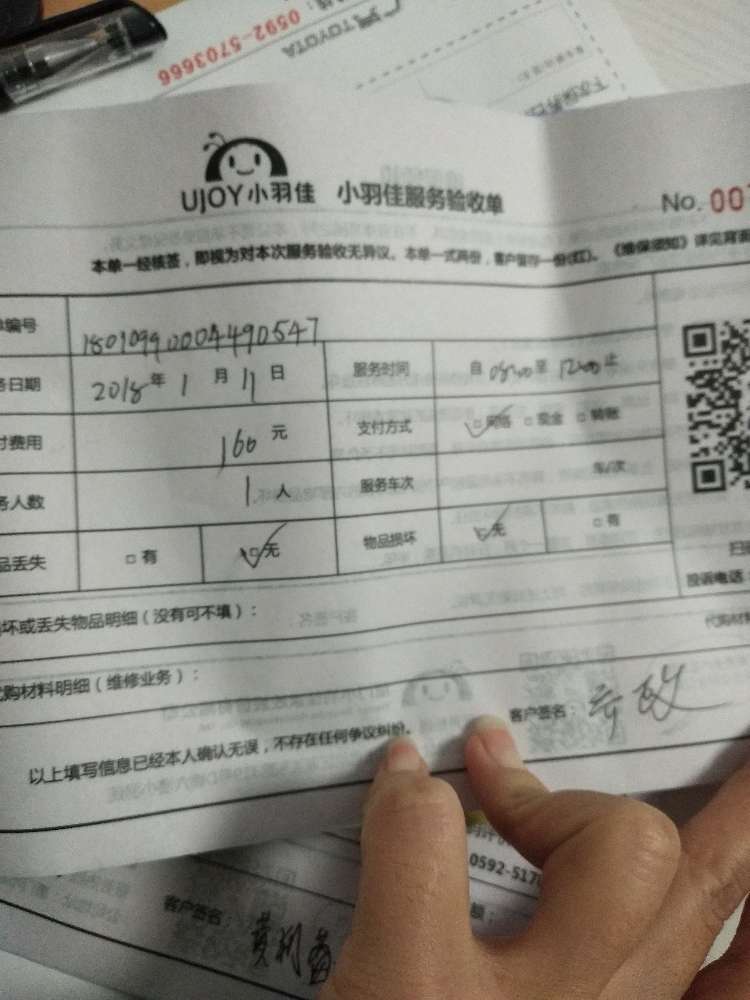 0592-5703666
TOYOTA
UJOY小羽佳 小羽佳服务验收单
No. 00
本单一经核签，即视为对本次服务验收无异议。本单一式两份，客户留存一份(红)。《维保须知》详见背面
单编号 18010990004490547
务日期 2018年 1 月 11 日 服务时间 自 08:00 至 12:00 止
付费用 160 元 支付方式 □网络 □现金 □转账
务人数 1 人 服务车次 车/次
品丢失 □有 □无 物品损坏 □无 □有
扫
投诉电话：
坏或丢失物品明细（没有可不填）：
代购材
代购材料明细（维修业务）：
客户签名：
以上填写信息已经本人确认无误，不存在任何争议纠纷。
0592-517
客户签名：
额：